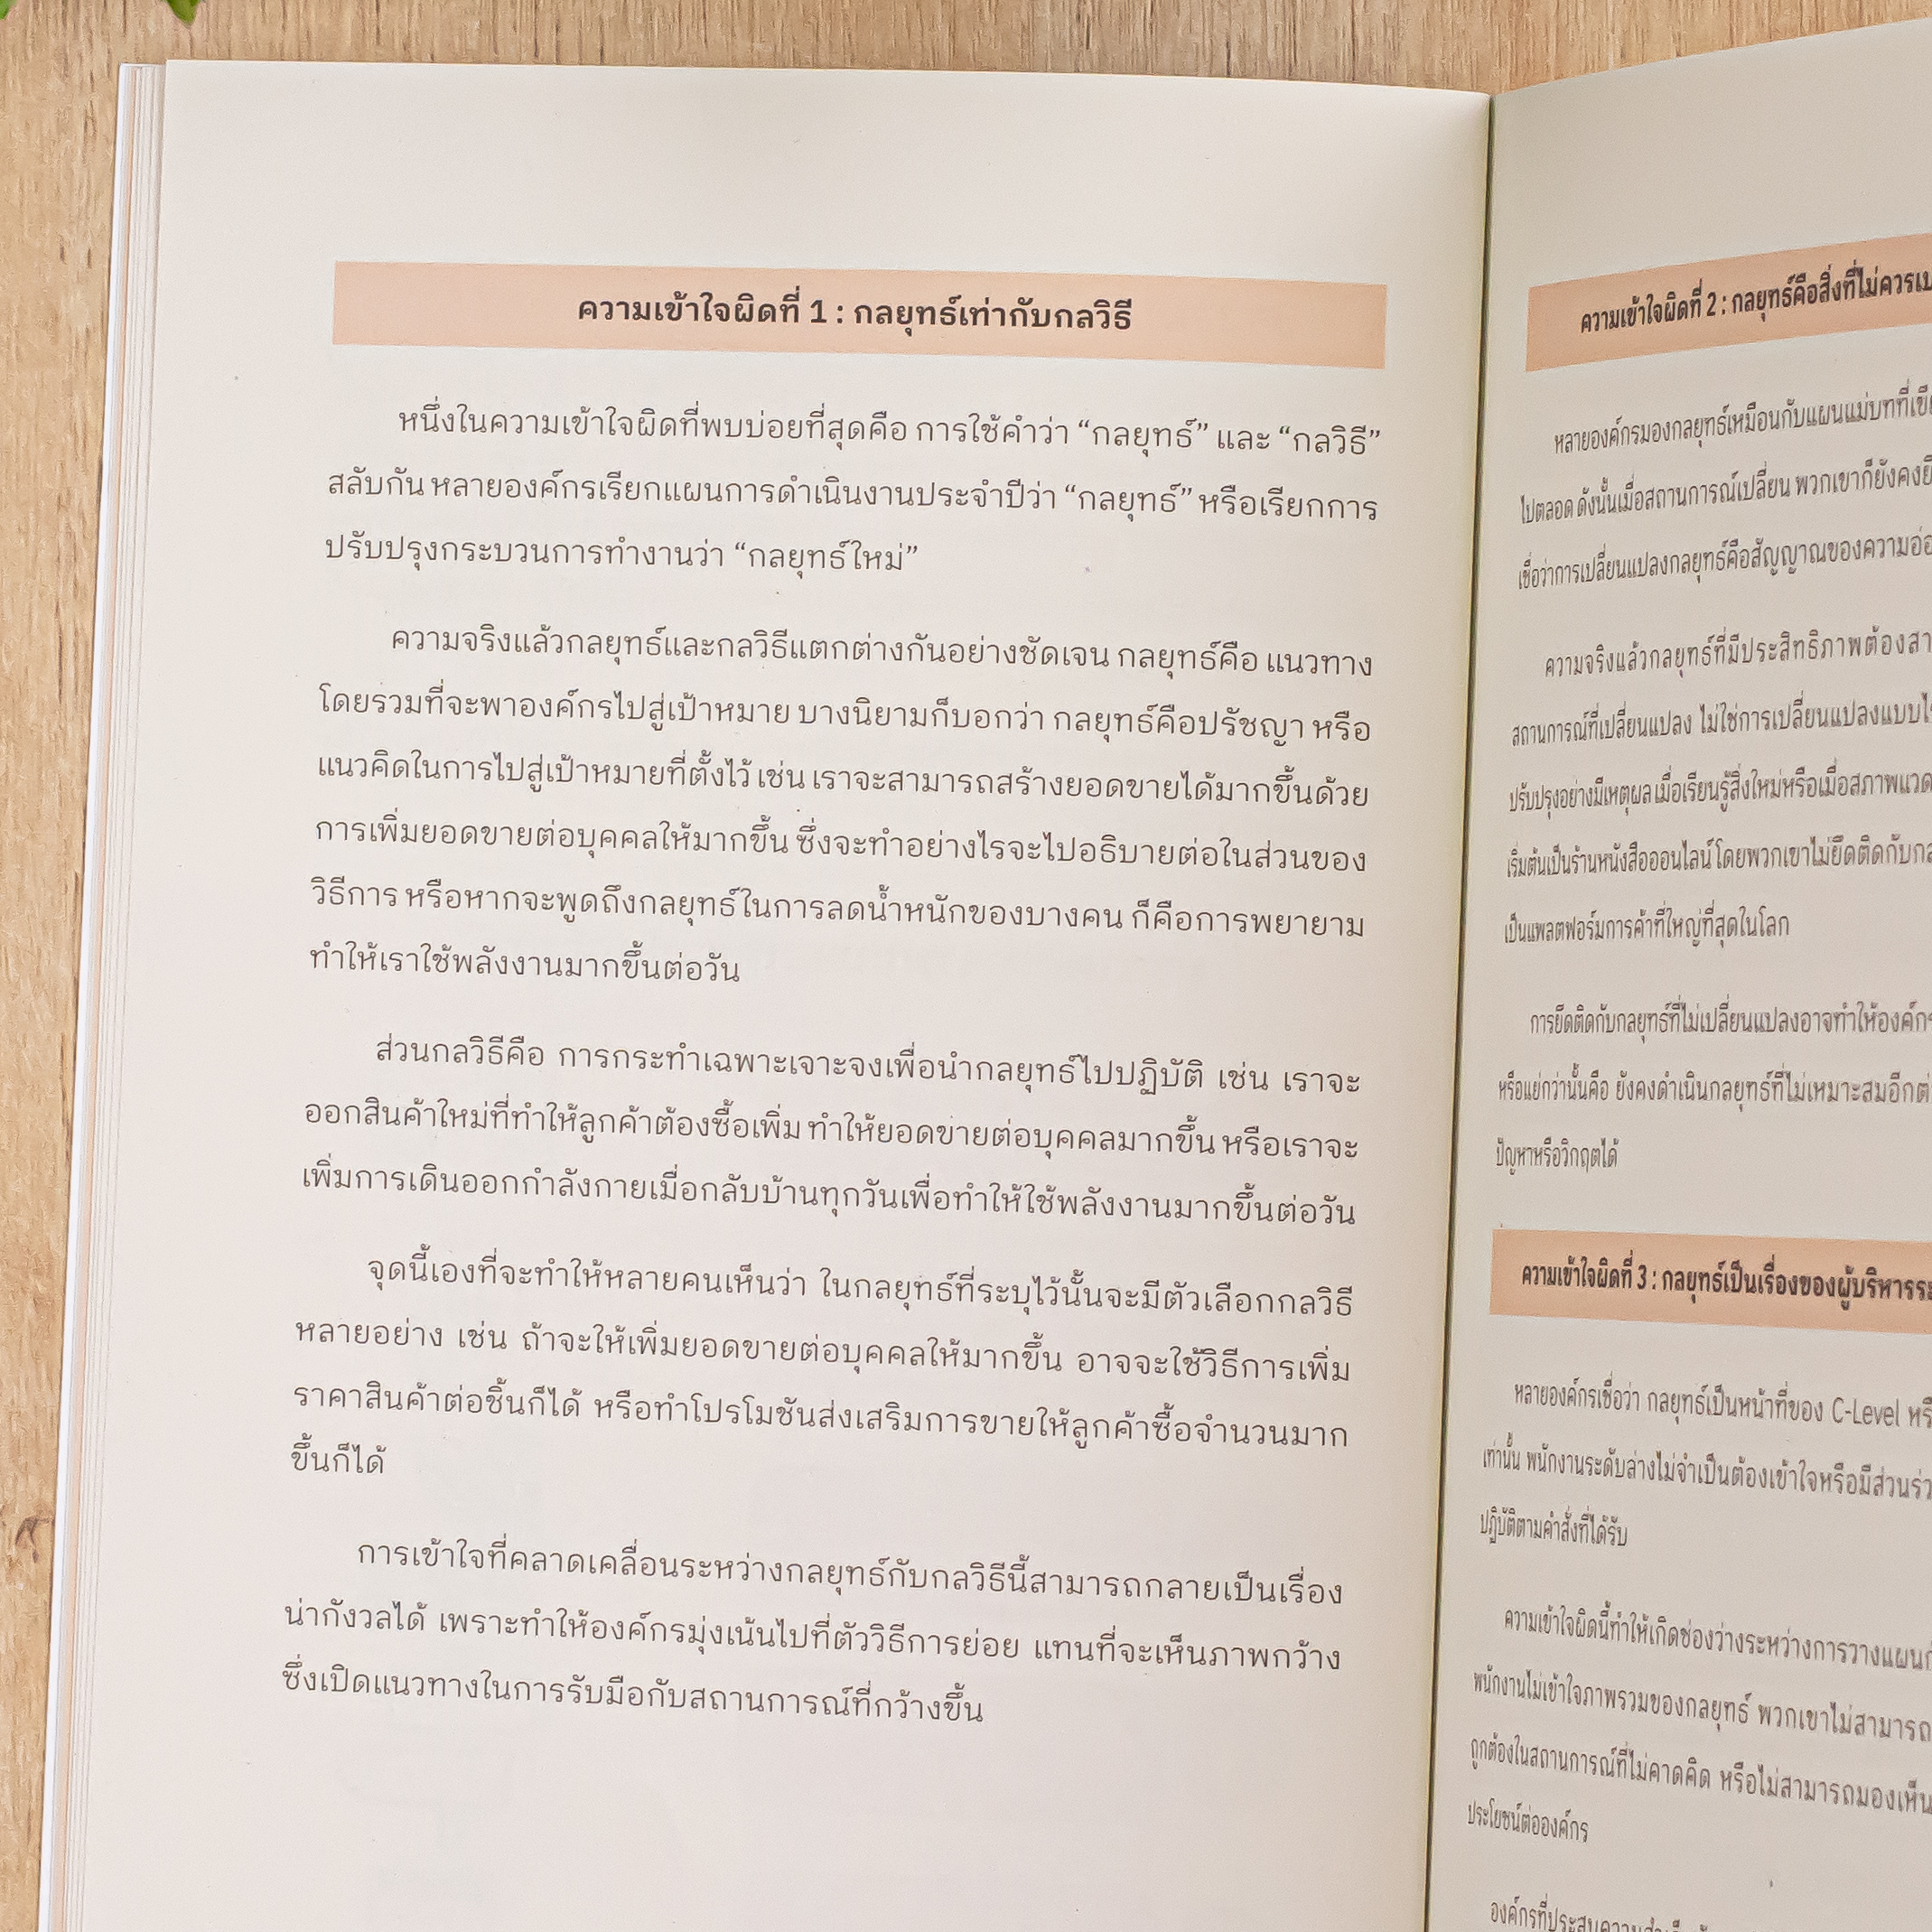 ความเข้าใจผิดที่ 1 : กลยุทธ์เท่ากับกลวิธี
หนึ่งในความเข้าใจผิดที่พบบ่อยที่สุดคือ การใช้คำว่า “กลยุทธ์” และ “กลวิธี”
สลับกัน หลายองค์กรเรียกแผนการดำเนินงานประจำปีว่า “กลยุทธ์” หรือเรียกการ
ปรับปรุงกระบวนการทำงานว่า “กลยุทธ์ใหม่”
ความจริงแล้วกลยุทธ์และกลวิธีแตกต่างกันอย่างชัดเจน กลยุทธ์คือ แนวทาง
โดยรวมที่จะพาองค์กรไปสู่เป้าหมาย บางนิยามก็บอกว่า กลยุทธ์คือปรัชญา หรือ
แนวคิดในการไปสู่เป้าหมายที่ตั้งไว้ เช่น เราจะสามารถสร้างยอดขายได้มากขึ้นด้วย
การเพิ่มยอดขายต่อบุคคลให้มากขึ้น ซึ่งจะทำอย่างไรจะไปอธิบายต่อในส่วนของ
วิธีการ หรือหากจะพูดถึงกลยุทธ์ในการลดน้ำหนักของบางคน ก็คือการพยายาม
ทำให้เราใช้พลังงานมากขึ้นต่อวัน
ส่วนกลวิธีคือ การกระทำเฉพาะเจาะจงเพื่อนำกลยุทธ์ไปปฏิบัติ เช่น เราจะ
ออกสินค้าใหม่ที่ทำให้ลูกค้าต้องซื้อเพิ่ม ทำให้ยอดขายต่อบุคคลมากขึ้น หรือเราจะ
เพิ่มการเดินออกกำลังกายเมื่อกลับบ้านทุกวันเพื่อทำให้ใช้พลังงานมากขึ้นต่อวัน
จุดนี้เองที่จะทำให้หลายคนเห็นว่า ในกลยุทธ์ที่ระบุไว้นั้นจะมีตัวเลือกกลวิธี
หลายอย่าง เช่น ถ้าจะให้เพิ่มยอดขายต่อบุคคลให้มากขึ้น อาจจะใช้วิธีการเพิ่ม
ราคาสินค้าต่อชิ้นก็ได้ หรือทำโปรโมชันส่งเสริมการขายให้ลูกค้าซื้อจำนวนมาก
ขึ้นก็ได้
การเข้าใจที่คลาดเคลื่อนระหว่างกลยุทธ์กับกลวิธีนี้สามารถกลายเป็นเรื่อง
น่ากังวลได้ เพราะทำให้องค์กรมุ่งเน้นไปที่ตัววิธีการย่อย แทนที่จะเห็นภาพกว้าง
ซึ่งเปิดแนวทางในการรับมือกับสถานการณ์ที่กว้างขึ้น
ความเข้าใจผิดที่ 2 : กลยุทธ์คือสิ่งที่ไม่ควร
หลายองค์กรมองกลยุทธ์เหมือนกับแผนแม่บทที่
ไปตลอด ดังนั้นเมื่อสถานการณ์เปลี่ยน พวกเขาก็ยังคง
เชื่อว่าการเปลี่ยนแปลงกลยุทธ์คือสัญญาณของความ
ความจริงแล้วกลยุทธ์ที่มีประสิทธิภาพต้อง
สถานการณ์ที่เปลี่ยนแปลง ไม่ใช่การเปลี่ยนแปลงแบบ
ปรับปรุงอย่างมีเหตุผล เมื่อเรียนรู้สิ่งใหม่หรือเมื่อสภาพแวด
เริ่มต้นเป็นร้านหนังสือออนไลน์ โดยพวกเขาไม่ยึดติดกับ
เป็นแพลตฟอร์มการค้าที่ใหญ่ที่สุดในโลก
การยึดติดกับกลยุทธ์ที่ไม่เปลี่ยนแปลงอาจทำให้องค์กร
หรือแย่กว่านั้นคือ ยังคงดำเนินกลยุทธ์ที่ไม่เหมาะสมอีก
ปัญหาหรือวิกฤตได้
ความเข้าใจผิดที่ 3 : กลยุทธ์เป็นเรื่องของผู้บริหาร
หลายองค์กรเชื่อว่า กลยุทธ์เป็นหน้าที่ของ C-Level
เท่านั้น พนักงานระดับล่างไม่จำเป็นต้องเข้าใจหรือมีส่วน
ปฏิบัติตามคำสั่งที่ได้รับ
ความเข้าใจผิดนี้ทำให้เกิดช่องว่างระหว่างการวางแผน
พนักงานไม่เข้าใจภาพรวมของกลยุทธ์ พวกเขาไม่สามารถ
ถูกต้องในสถานการณ์ที่ไม่คาดคิด หรือไม่สามารถมองเห็น
ประโยชน์ต่อองค์กร
องค์กรที่ประสบความสำเร็จ